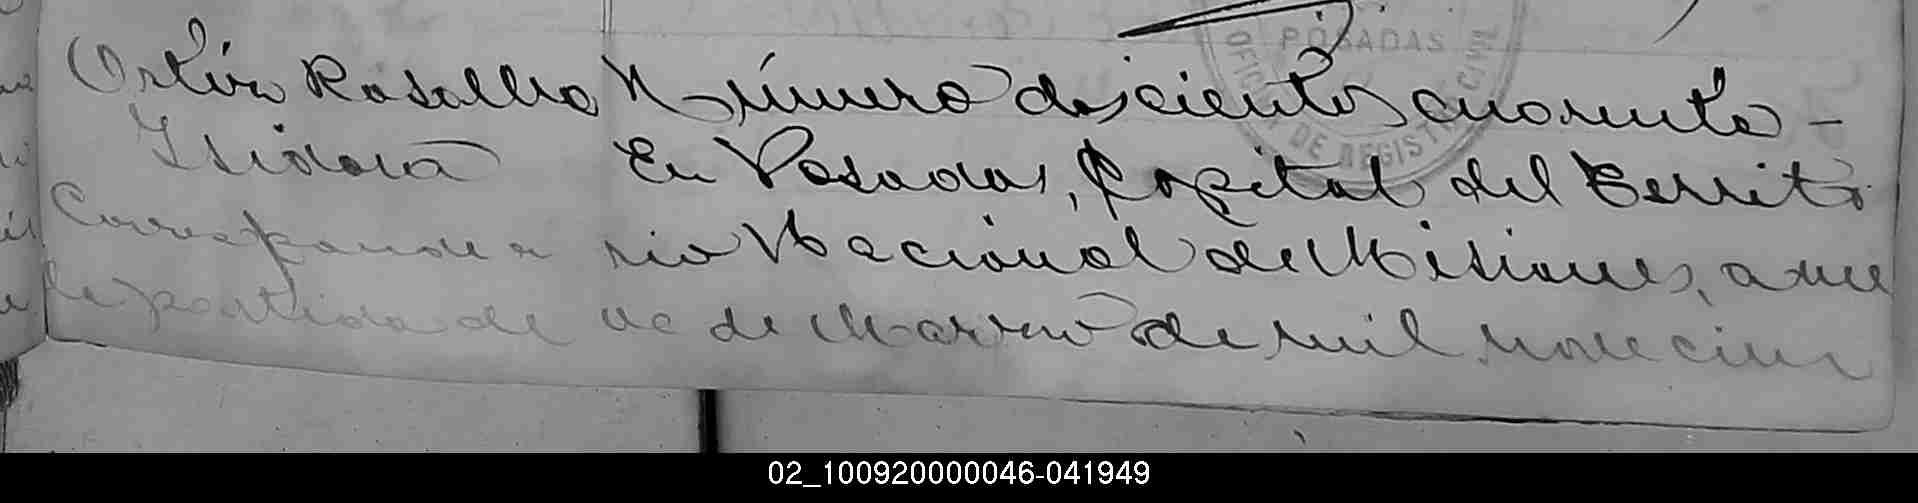 POSADAS
OFICINA DE REGISTRO CIVIL
Ortíz Rosalha Número doscientos cuarenta -
Isidora En Posadas, Capital del Territo
Corresponde a rio Nacional de Misiones, a nue
la partida de ve de Marzo de mil novecien
02_100920000046-041949